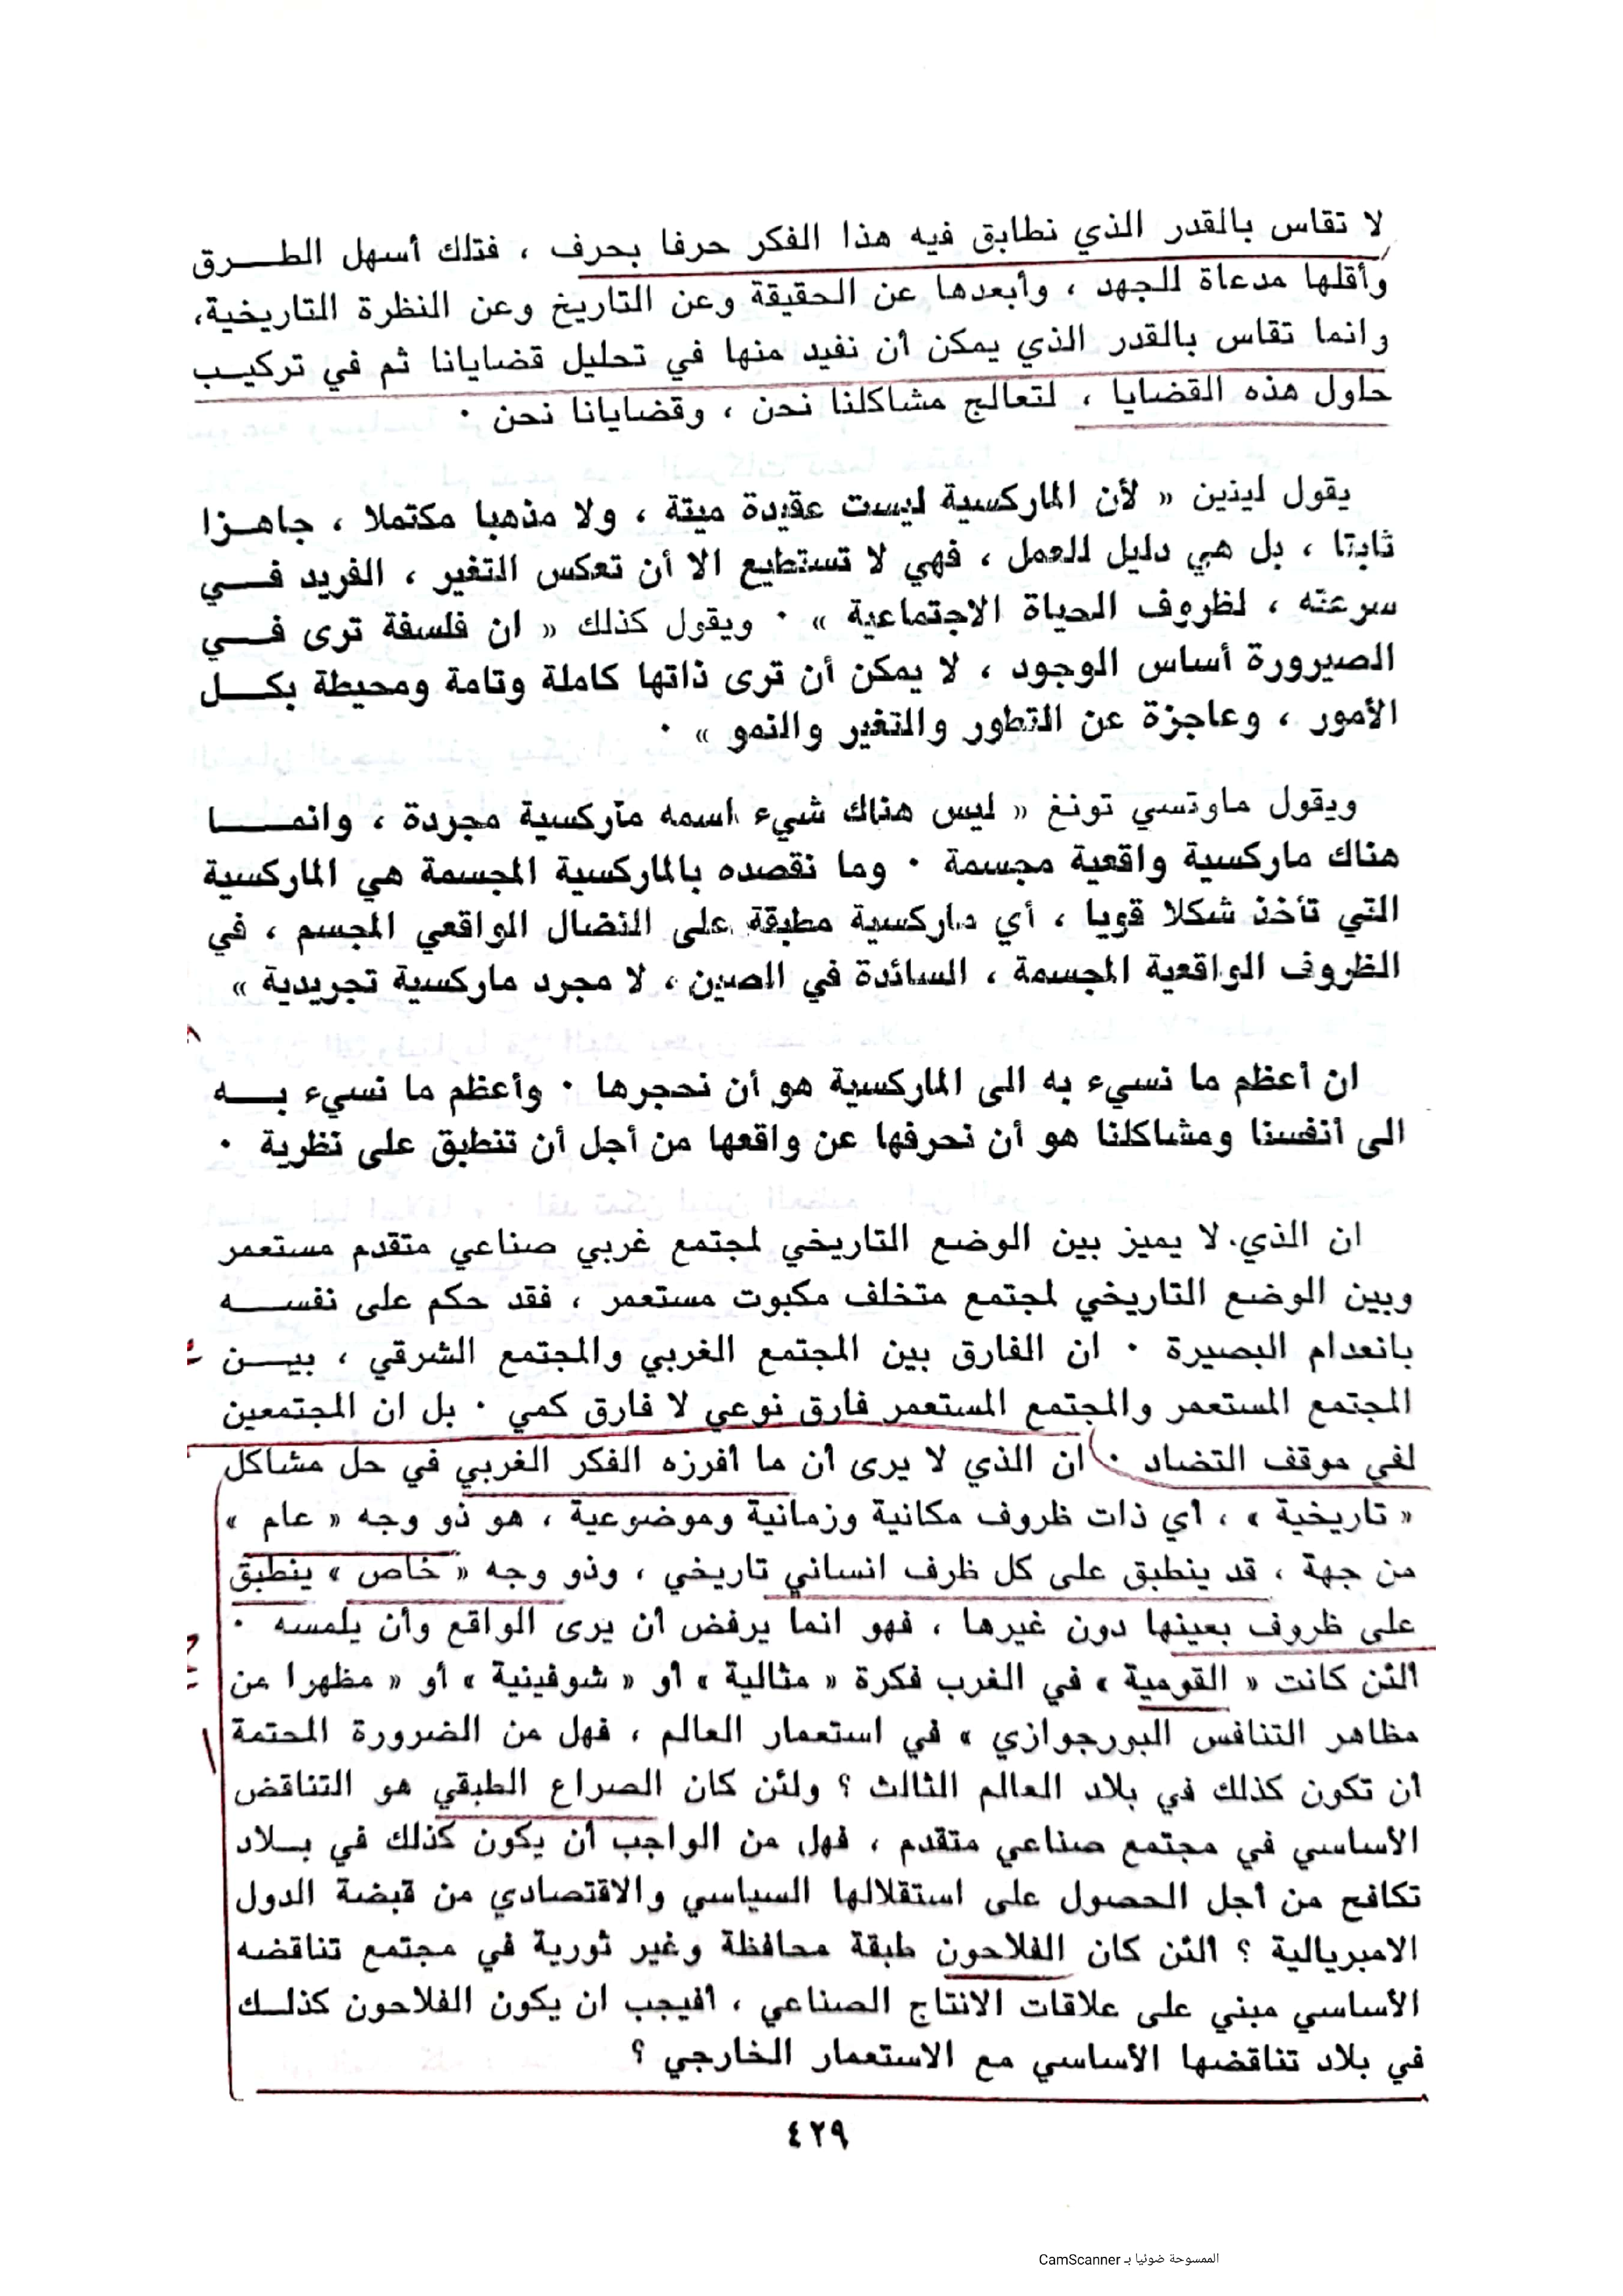 لا تقاس بالقدر الذي نطابق فيه هذا الفكر حرفا بحرف ، فتلك أسهل الطــرق
وأقلها مدعاة للجهد ، وأبعدها عن الحقيقة وعن التاريخ وعن النظرة التاريخية،
وانما تقاس بالقدر الذي يمكن أن نفيد منها في تحليل قضايانا ثم في تركيــب
حلول هذه القضايا ، لتعالج مشاكلنا نحن ، وقضايانا نحن ٠
يقول لينين « لأن الماركسية ليست عقيدة ميتة ، ولا مذهبا مكتملا ، جاهــزا
ثابتا ، بل هي دليل للعمل ، فهي لا تستطيع الا أن تعكس التغير ، الفريد فــي
سرعته ، لظروف الحياة الاجتماعية » ٠ ويقول كذلك « ان فلسفة ترى فــي
الصيرورة أساس الوجود ، لا يمكن أن ترى ذاتها كاملة وتامة ومحيطة بكــل
الأمور ، وعاجزة عن التطور والتغير والنمو » ٠
ويقول ماوتسي تونغ « ليس هناك شيء اسمه ماركسية مجردة ، وانمــا
هناك ماركسية واقعية مجسمة ٠ وما نقصده بالماركسية المجسمة هي الماركسية
التي تأخذ شكلا قويا ، أي ماركسية مطبقة على النضال الواقعي المجسم ، في
الظروف الواقعية المجسمة ، السائدة في الصين ، لا مجرد ماركسية تجريدية »
ان أعظم ما نسيء به الى الماركسية هو أن نحجرها ٠ وأعظم ما نسيء بــه
الى أنفسنا ومشاكلنا هو أن نحرفها عن واقعها من أجل أن تنطبق على نظرية ٠
ان الذي لا يميز بين الوضع التاريخي لمجتمع غربي صناعي متقدم مستعمر
وبين الوضع التاريخي لمجتمع متخلف مكبوت مستعمر ، فقد حكم على نفســه
بانعدام البصيرة ٠ ان الفارق بين المجتمع الغربي والمجتمع الشرقي ، بيــن
المجتمع المستعمر والمجتمع المستعمر فارق نوعي لا فارق كمي ٠ بل ان المجتمعين
لفي موقف التضاد ٠ ان الذي لا يرى أن ما أفرزه الفكر الغربي في حل مشاكل
« تاريخية » ، أي ذات ظروف مكانية وزمانية وموضوعية ، هو ذو وجه « عام »
من جهة ، قد ينطبق على كل ظرف انساني تاريخي ، وذو وجه « خاص » ينطبق
على ظروف بعينها دون غيرها ، فهو انما يرفض أن يرى الواقع وأن يلمسه ٠
ألئن كانت « القومية » في الغرب فكرة « مثالية » أو « شوفينية » أو « مظهرا من
مظاهر التنافس البورجوازي » في استعمار العالم ، فهل من الضرورة المحتمة
أن تكون كذلك في بلاد العالم الثالث ؟ ولئن كان الصراع الطبقي هو التناقض
الأساسي في مجتمع صناعي متقدم ، فهل من الواجب أن يكون كذلك في بــلاد
تكافح من أجل الحصول على استقلالها السياسي والاقتصادي من قبضة الدول
الامبريالية ؟ ألئن كان الفلاحون طبقة محافظة وغير ثورية في مجتمع تناقضه
الأساسي مبني على علاقات الانتاج الصناعي ، أفيجب ان يكون الفلاحون كذلــك
في بلاد تناقضها الأساسي مع الاستعمار الخارجي ؟
٤٢٩
الممسوحة ضوئيا بـ CamScanner